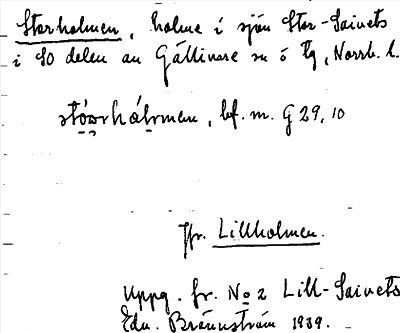 Storholmen, holme i sjön Stor-Saivets
i SO delen av Gällivare sn ö tg, Norrb. l.
stóorhálmen, bf. m. G 29, 10
Jfr. Lillholmen.
Uppg. fr. No 2 Lill-Saivets
Edv. Brännström 1939.